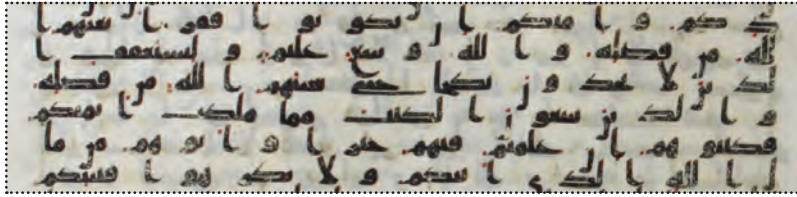 د كم و امائكم ان يكونوا فقرا يغنهم ا
لله من فضله و الله و سع عليم و ليستعفف ا
لذين لا يجد و ن نكحا حتى يغنيهم الله من فضله
و الذين يبتغون الكتب مما ملكت ايمنكم
فكتبوهم ان علمتم فيهم خيرا و اتوهم من ما
ل الله الذي اتيكم و لا تكرهوا فتيتكم